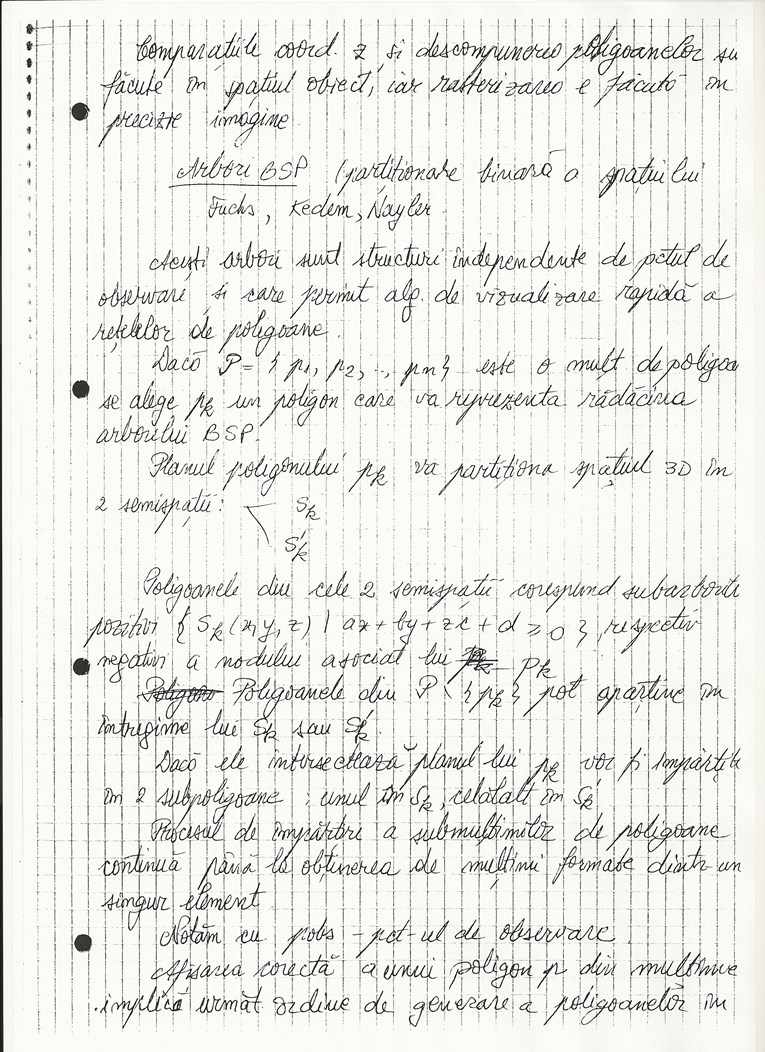 Comparațiile coord. z și descompunerea poligoanelor su
făcute în spațiul obiect, iar rasterizarea e făcută în
precizie imagine.
Arbori BSP (partiționare binară a spațiului
Fuchs, Kedem, Nayler.
Acești arbori sunt structuri independente de pctul de
observare și care permit alg. de vizualizare rapidă a
rețelelor de poligoane.
Dacă P = { p1, p2, .., pn } este o mulț de poligoa
se alege pk un poligon care va reprezenta rădăcina
arborelui BSP.
Planul poligonului pk va partiționa spațiul 3D în
2 semispații: Sk
S'k
Poligoanele din cele 2 semispații corespund subarborilo
pozitiv { Sk (x, y, z) | ax + by + zc + d ≥ 0 }, respectiv
negativ a nodului asociat lui pk
Poligoanele din P \ {pk} pot aparține în
întregime lui Sk sau S'k.
Dacă ele intersectează planul lui pk vor fi împărțite
în 2 subpoligoane : unul în Sk, celălalt în S'k
Procesul de împărțire a submulțimilor de poligoane
continuă până la obținerea de mulțimi formate dintr-un
singur element.
Notăm cu pobs - pct-ul de observare.
Afișarea corectă a unui poligon p din mulțime
implică următ ordine de generare a poligoanelor în